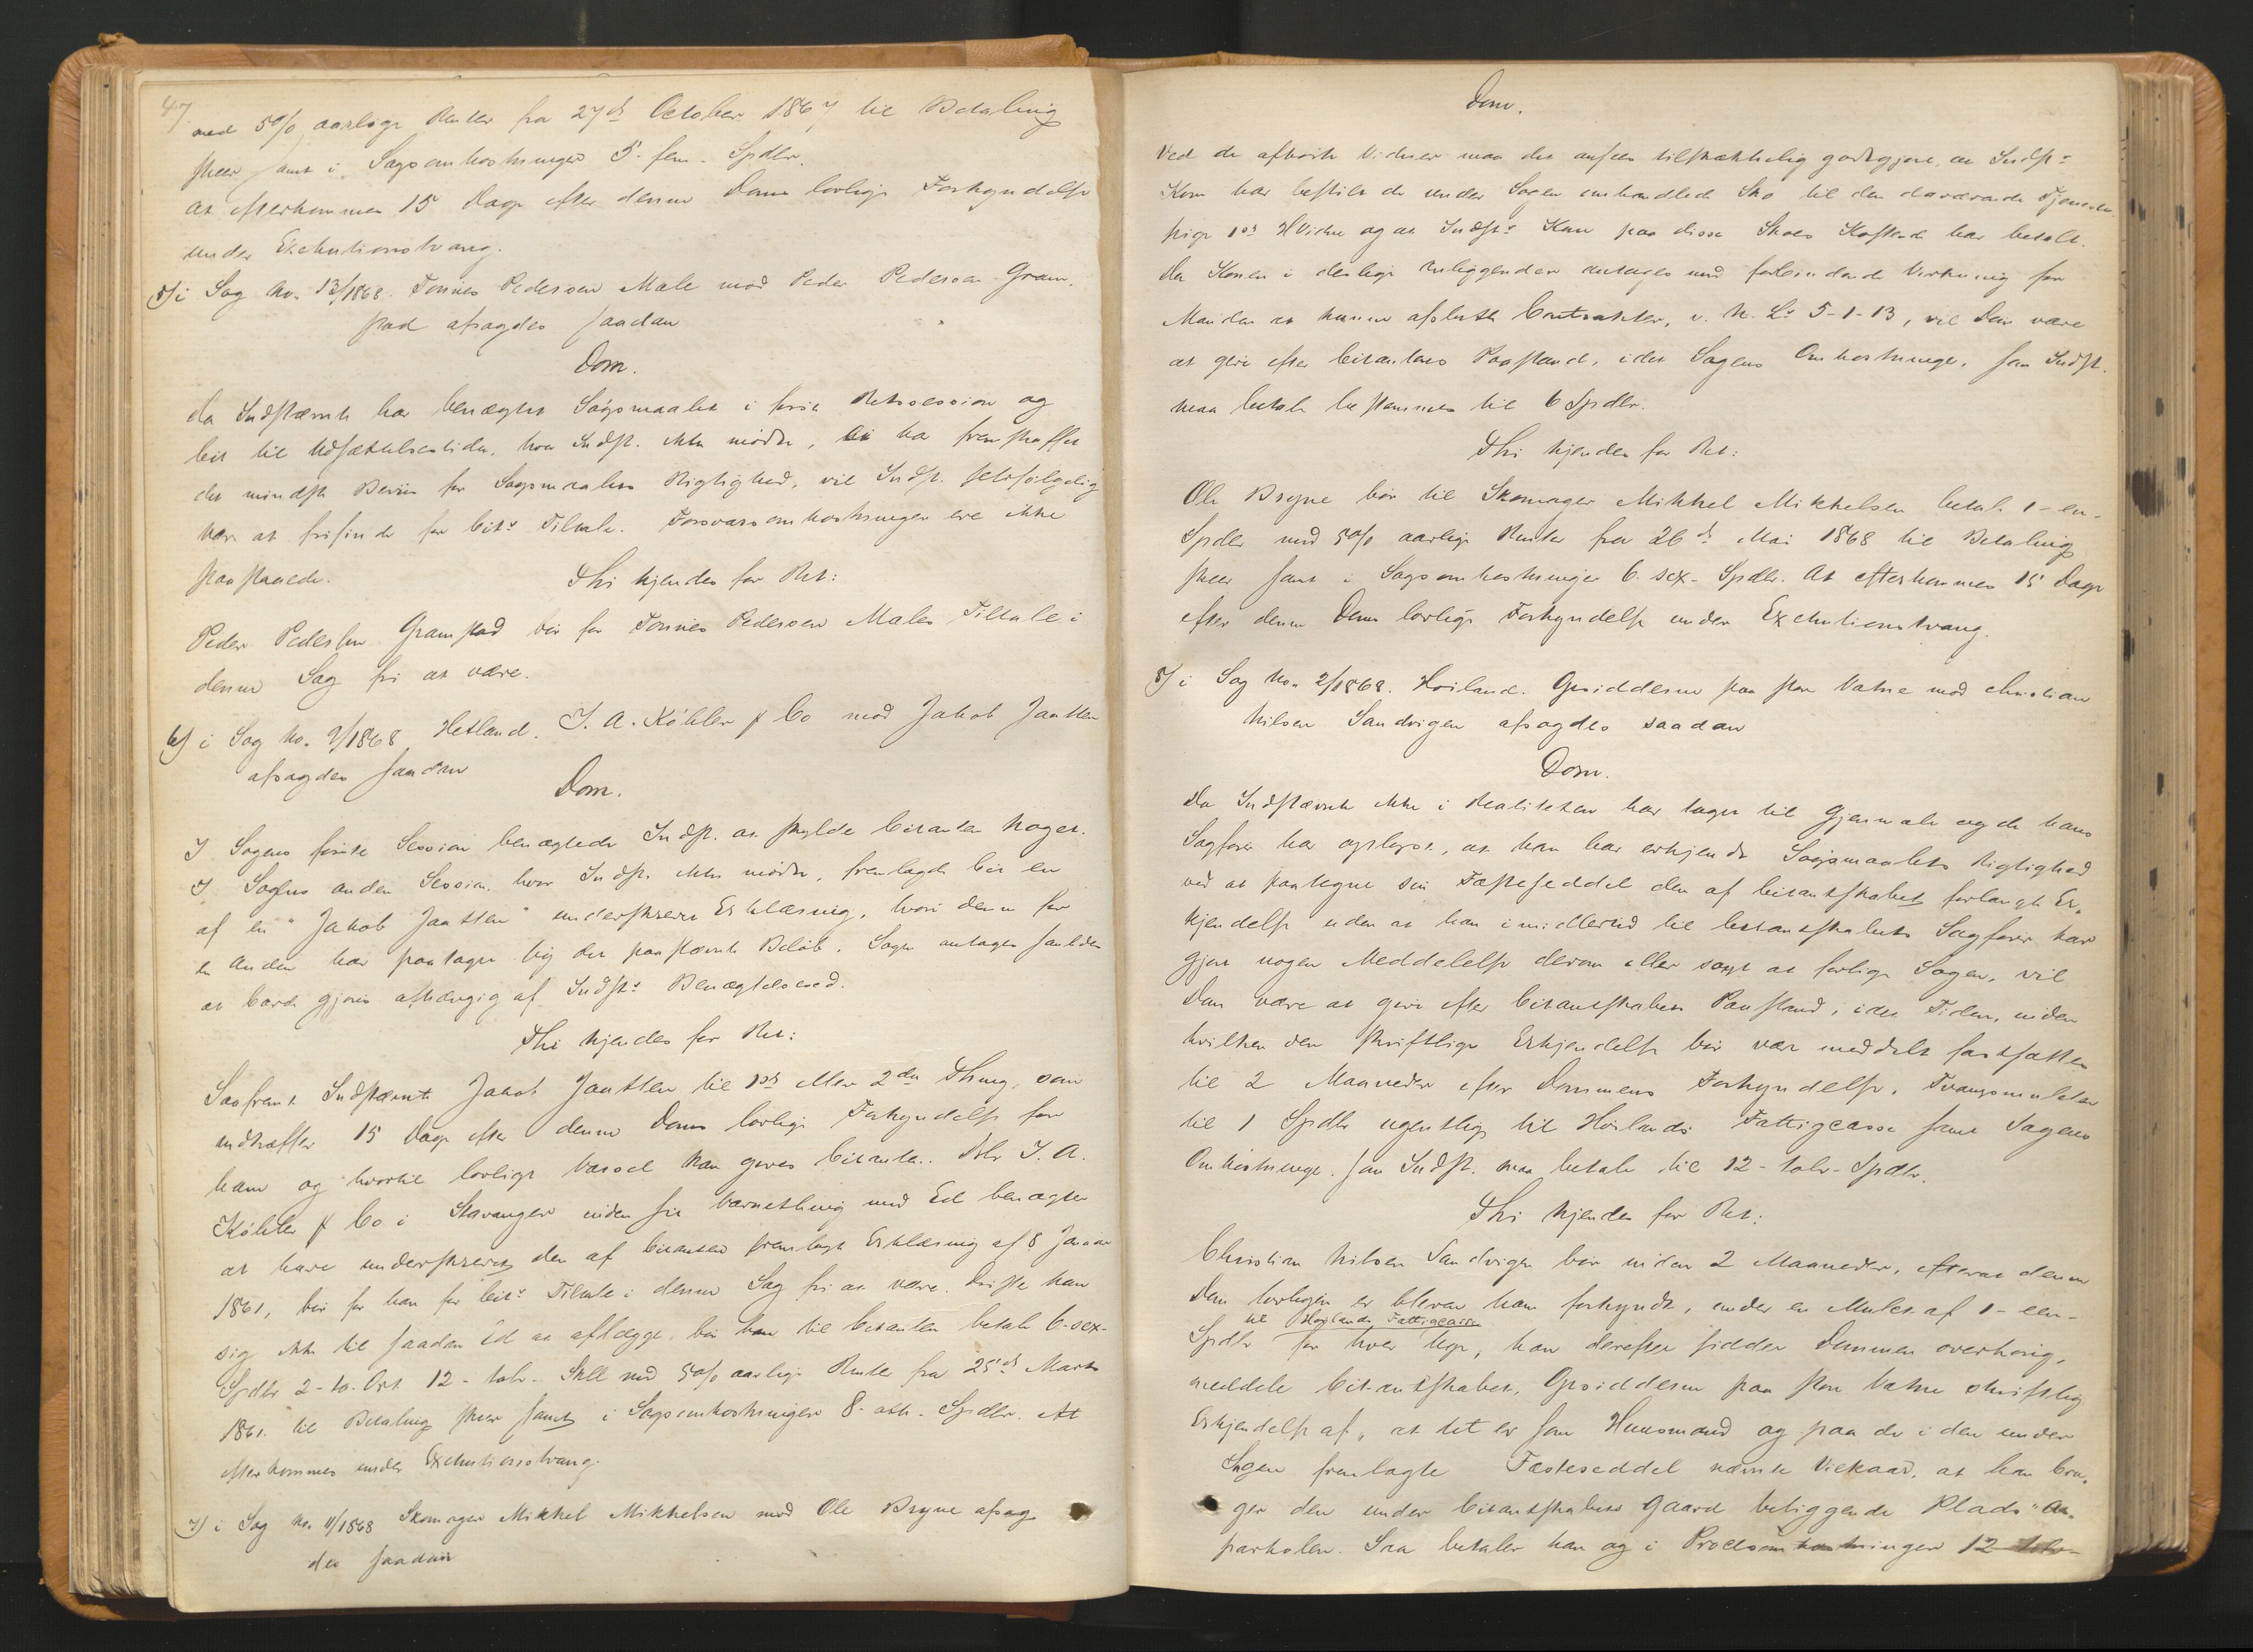 47
med 5% aarlige Renter fra 27de October 1867 til Betaling
skeer samt i Sagsomkostninger 5 - fem - Spdlr.
At efterkommes 15 Dage efter denne Doms lovlige Forkyndelse
under Exekutionstvang.
5) i Sag No. 13/1868. Tønnes Pedersen Male mod Peder Pedersen Gram-
stad afsagdes saadan
Dom.
Da Indstævnte har benægtet Søgsmaalet i første Retssession og
Cit. til Udsættelsestiden, hvor Indst. ikke mødte, ei har fremskaffet
det mindste Beviis for Søgsmaalets Rigtighed, vil Indst. selvfølgelig
være at frifinde for Cits Tiltale. Forsvarsomkostninger ere ikke
paastaaede.
Thi kjendes for Ret:
Peder Pedersen Gramstad bør for Tønnes Pedersen Males Tiltale i
denne Sag fri at være.
6) i Sag No. 9/1868 Hetland. J. A. Køhler & Co mod Jakob Jaatten
afsagdes saadan
Dom.
I Sagens første Session benægtede Indst. at skylde Citanten noget.
I Sagens anden Session, hvor Indst. ikke mødte, fremlagde Cit. en
af en "Jakob Jaatten" underskreven Erklæring, hvori denne for
en Anden har paataget sig det paastævnte Beløb. Sagen antages saaledes
at burde gjøres afhængig af Indsts Benægtelseseed.
Thi kjendes for Ret:
Saafremt Indstævnte Jakob Jaatten til 1ste eller 2det Thing, som
indtræffer 15 Dage efter denne Doms lovlige Forkyndelse for
ham og hvortil lovligt Varsel kan gives Citanten J. A.
Køhler & Co i Stavanger inden sit Værnething med Eed benægter
at have underskrevet den af Citanten fremlagte Erklæring af 8 Januar
1861, bør han for Cits Tiltale i denne Sag fri at være. Drister han
sig ikke til saadan Ed at aflægge, bør han til Citanten betale 6 - sex -
Spdlr 2 - to - Ort 12 - tolv - Skll med 5% aarlige Renter fra 25de Marts
1861 til Betaling skeer samt i Sagsomkostninger 8 - otte - Spdlr. At
efterkommes under Exekutionstvang.
7) i Sag No. 11/1868 Skomager Mikkel Mikkelsen mod Ole Bryne afsag-
des saadan
Dom.
Ved de afhørte Vidner maa det ansees tilstrækkelig godtgjort, at Indsts
Kone har bestilt de under Sagen omhandlede Sko til den daværende Tjeneste-
pige 1ste Vidne og at Indsts Kone paa disse Skoes Kostende har betalt.
Da Konen i deslige Anliggender antages med forbindende Virkning for
Manden at kunne afslutte Contrakter, v. N. Ls 5-1-13, vil Dom være
at give efter Citantens Paastand, idet Sagens Omkostninger, som Indst.
maa betale bestemmes til 6 Spdlr.
Thi kjendes for Ret:
Ole Bryne bør til Skomager Mikkel Mikkelsen betale 1 - en -
Spdlr med 5% aarlige Renter fra 26de Mai 1868 til Betaling
skeer samt i Sagsomkostninger 6 - sex - Spdlr. At efterkommes 15 Dage
efter denne Doms lovlige Forkyndelse under Exekutionstvang.
8) i Sag No. 2/1868. Høiland. Opsidderne paa store Vatne mod Christian
Nilsen Sandvigen afsagdes saadan
Dom.
Da Indstævnte ikke i Realiteten har taget til Gjenmæle og da hans
Sagfører har oplyst, at han har erkjendt Søgsmaalets Rigtighed
ved at paategne sin Fæsteseddel den af Citantskabet forlangte Er-
kjendelse uden at han imidlertid til Citantskabets Sagfører har
gjort nogen Meddelelse derom eller søgt at forlige Sagen, vil
Dom være at give efter Citantskabets Paastand, idet Tiden, inden
hvilken den skriftlige Erkjendelse bør være meddelt fastsættes
til 2 Maaneder efter Dommens Forkyndelse, Tvangsmulkten
til 1 Spdlr ugentlig til Høilands Fattigcasse samt Sagens
Omkostninger, som Indst. maa betale til 12 - tolv - Spdlr.
Thi kjendes for Ret:
Christian Nilsen Sandvigen bør inden 2 Maaneder, efterat denne
Dom lovligen er bleven ham forkyndt, under en Mulct af 1 - een -
til Høilands Fattigcasse
Spdlr for hver Uge, han derefter sidder Dommen overhørig,
meddele Citantskabet, Opsidderne paa store Vatne skriftlig
Erkjendelse af, at det er som Huusmand og paa de i den under
Sagen fremlagte Fæsteseddel nævnte Vilkaar, at han bru-
ger den under Citantskabets Gaard beliggende Plads "An-
parholen. Saa betaler han og i Procesomkostninger 12 - tolv -